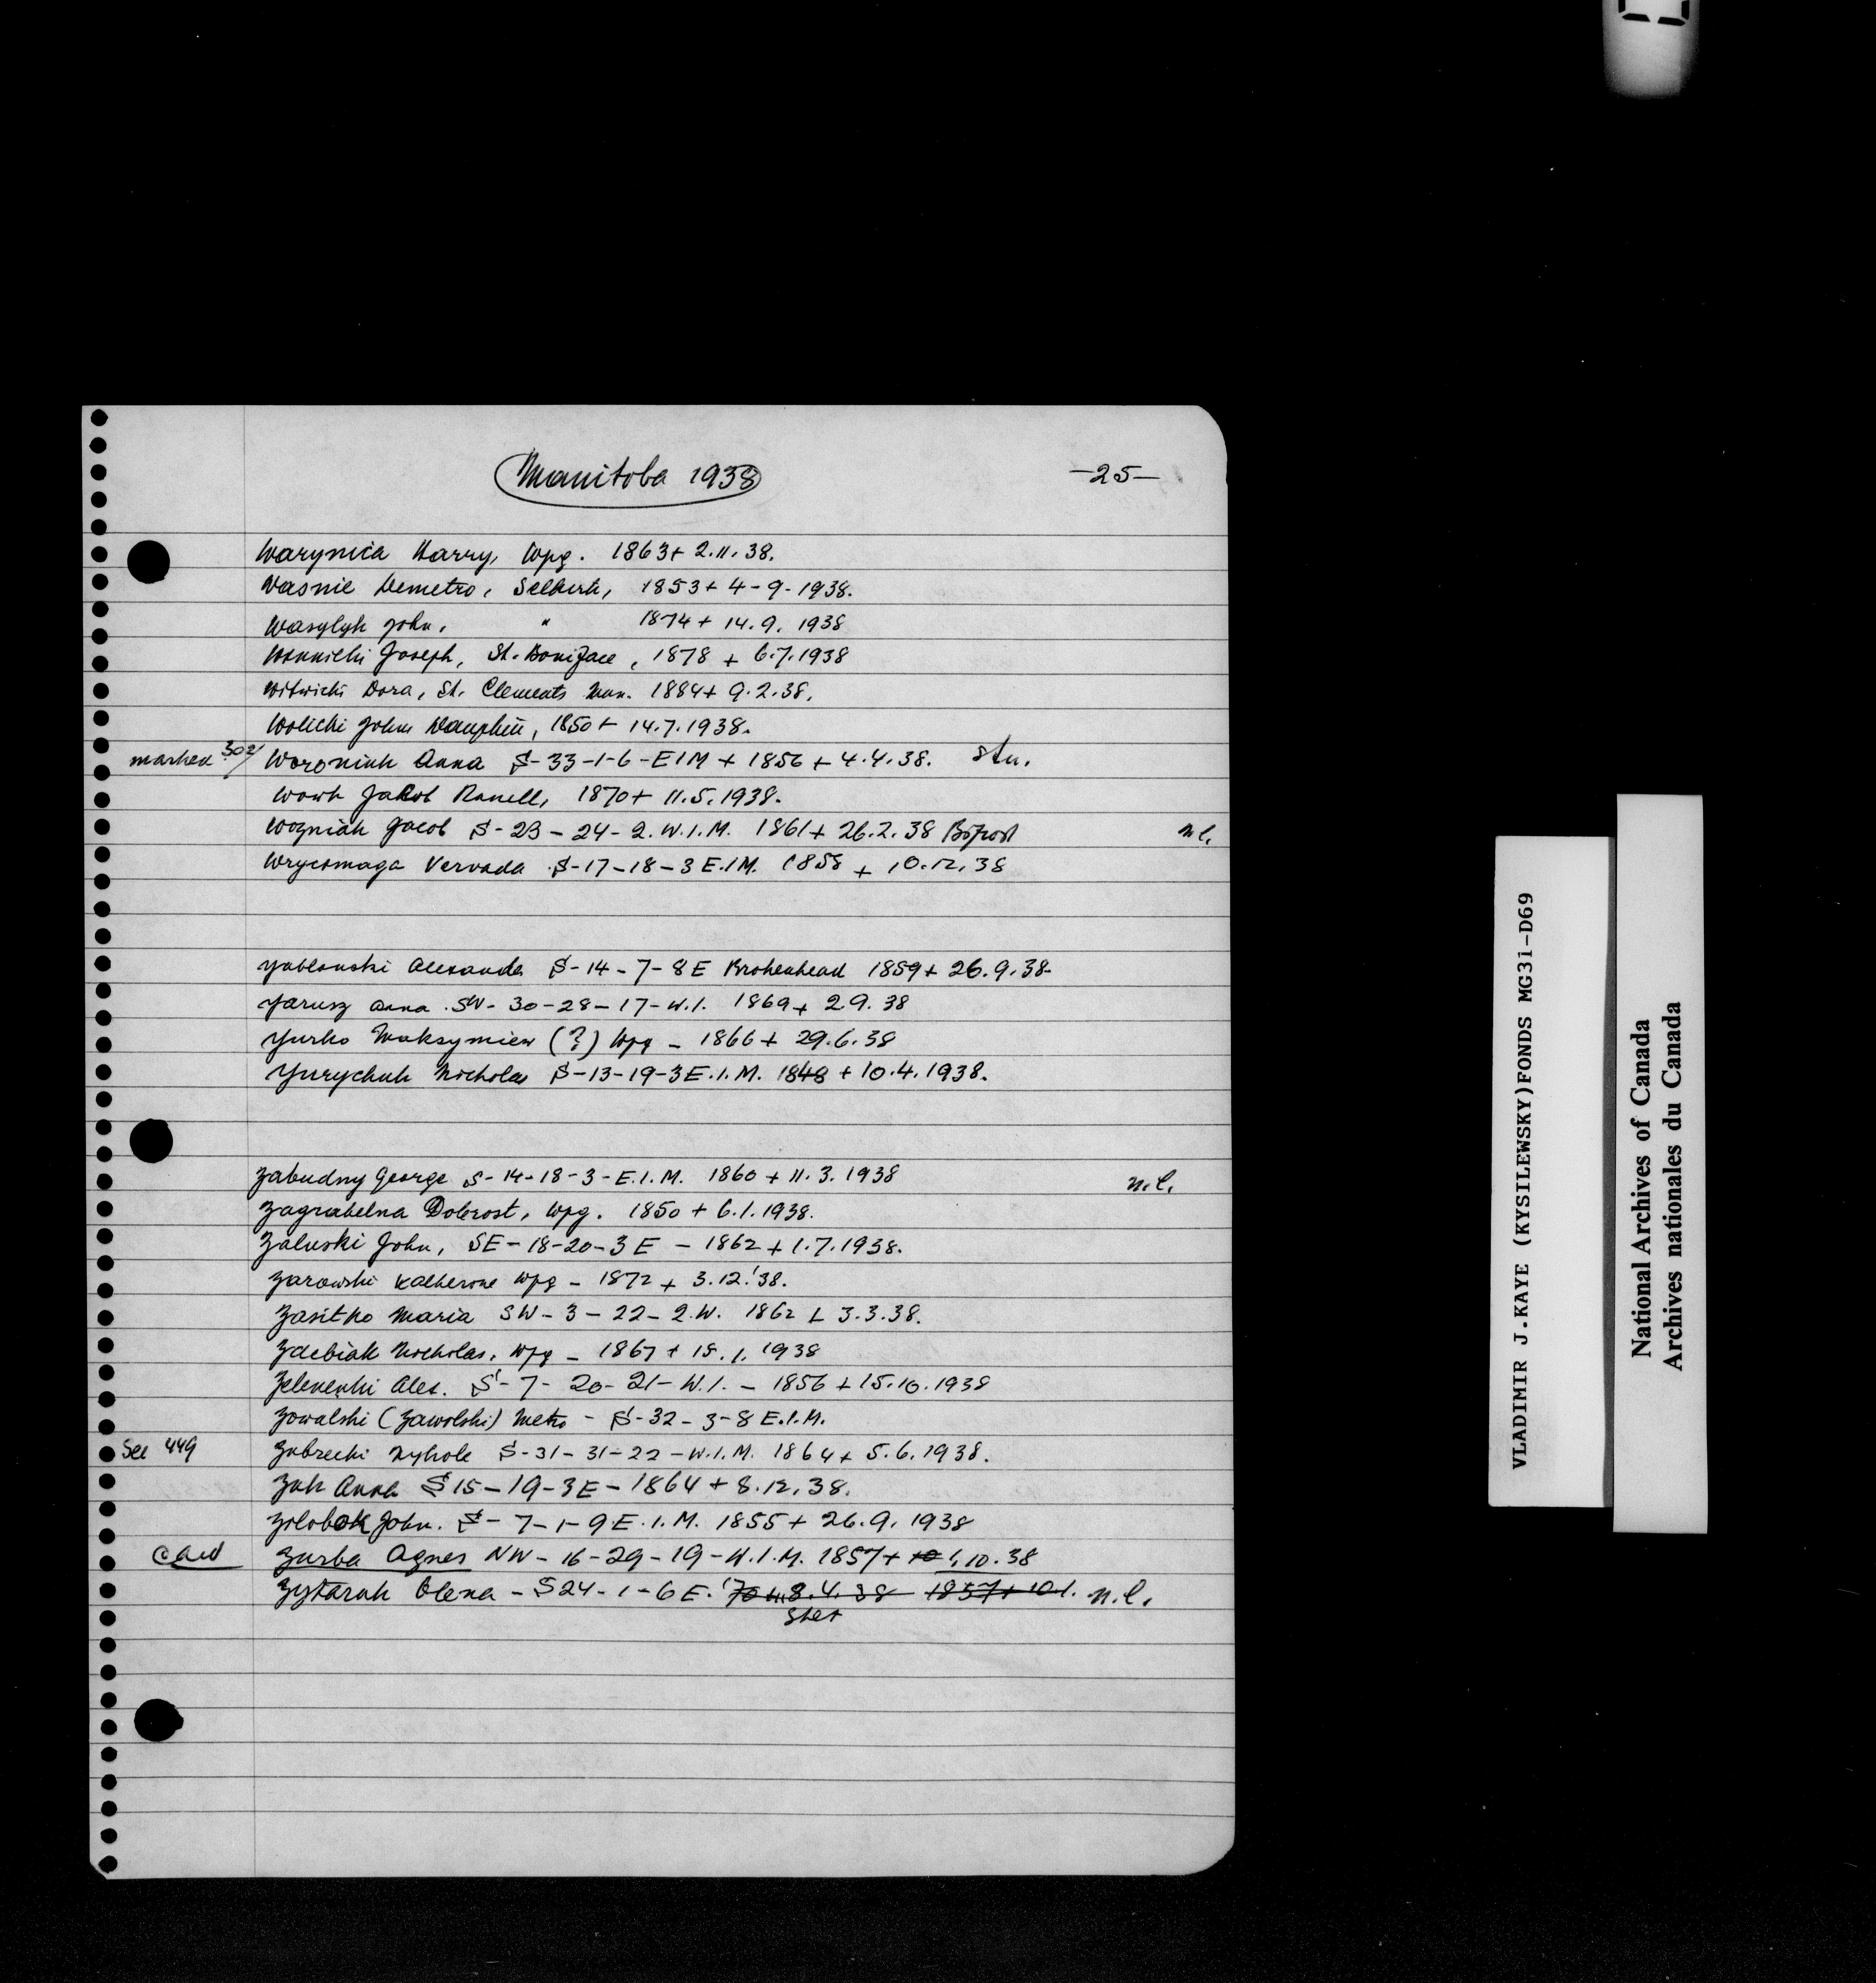 Manitoba 1938
-25-
Warynica Harry, Wpg. 1863+ 2.11.38.
Wasnie Demetro, Selkirk, 1853+ 4-9-1938.
Wasylyk John, " 1874 + 14.9. 1938
Joseph, St. Boniface, 1878 + 6.7.1938
Witwicki Dora, St. Clements Mun. 1884+ 9.2.38.
Wolicki John Dauphin, 1850+ 14.7.1938.
marked 302/ Woroniuk Anna S-33-1-6-E1M + 1856 + 4.4.38. Stu.
Wowk Jakob Ranell, 1870+ 11.5.1938.
Wozniak Jacob S-23-24-2.W.1.M. 1861+ 26.2.38 Bifrost n.l.
Wrycomaga Vervada S-17-18-3E.1M. 1858 + 10.12.38
Yablonski Alexander S-14-7-8E Brokenhead 1859+ 26.9.38-
Yarusz Anna. SW-30-28-17-W.1. 1869+ 2.9.38
Yurko Maksymiew (?) Wpg - 1866+ 29.6.38
Yurychuk Nicholas S-13-19-3E.1.M. 1848 + 10.4.1938.
Zabudny George S-14-18-3-E.1.M. 1860 + 11.3.1938 n.l.
Zagrabelna Dobrost, Wpg. 1850 + 6.1.1938.
Zaluski John, SE-18-20-3E - 1862 + 1.7.1938.
Zarowski Katherine Wpg - 1872 + 3.12.'38.
Zasitko Maria SW-3-22-2.W. 1862 + 3.3.38.
Zdebiak Nicholas, Wpg - 1867 + 15.1.1938
Zelenenki Alex. S-7-20-21-W.1. - 1856 + 15.10.1938
Zowalski (Zawolski) Metro - S-32-3-8E.1.M.
See 449 Zubrecki Nykola S-31-31-22-W.1.M. 1864+ 5.6.1938.
Zuk Anna S15-19-3E-1864 + 8.12.38.
Zolobok John. S-7-1-9.E.1.M. 1855+ 26.9.1938
Card Zurba Agnes NW-16-29-19-W.1.M. 1857+ 10 1.10.38
Zytaruk Olena - S24-1-6E. '70 8.4.38 1857+ 10.1. n.l.
Stet
VLADIMIR J.KAYE (KYSILEWSKY)FONDS MG31-D69
National Archives of Canada
Archives nationales du Canada